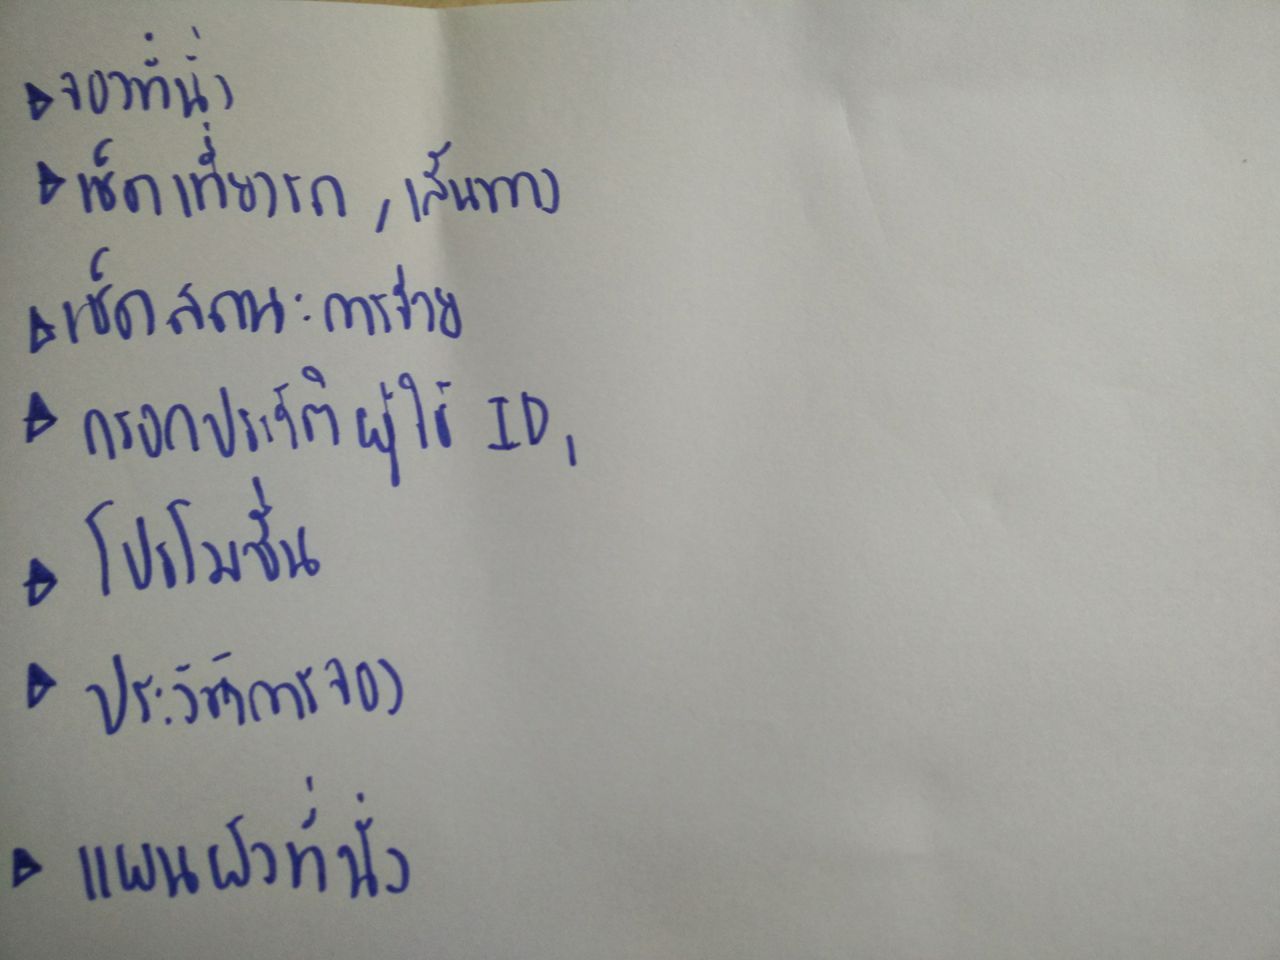 จองที่นั่ง
เช็คเที่ยวรถ, เส้นทาง
เช็คสถานะการจ่าย
กรอกประวัติผู้ใช้ ID,
โปรโมชั่น
ประวัติการจอง
แผนผังที่นั่ง